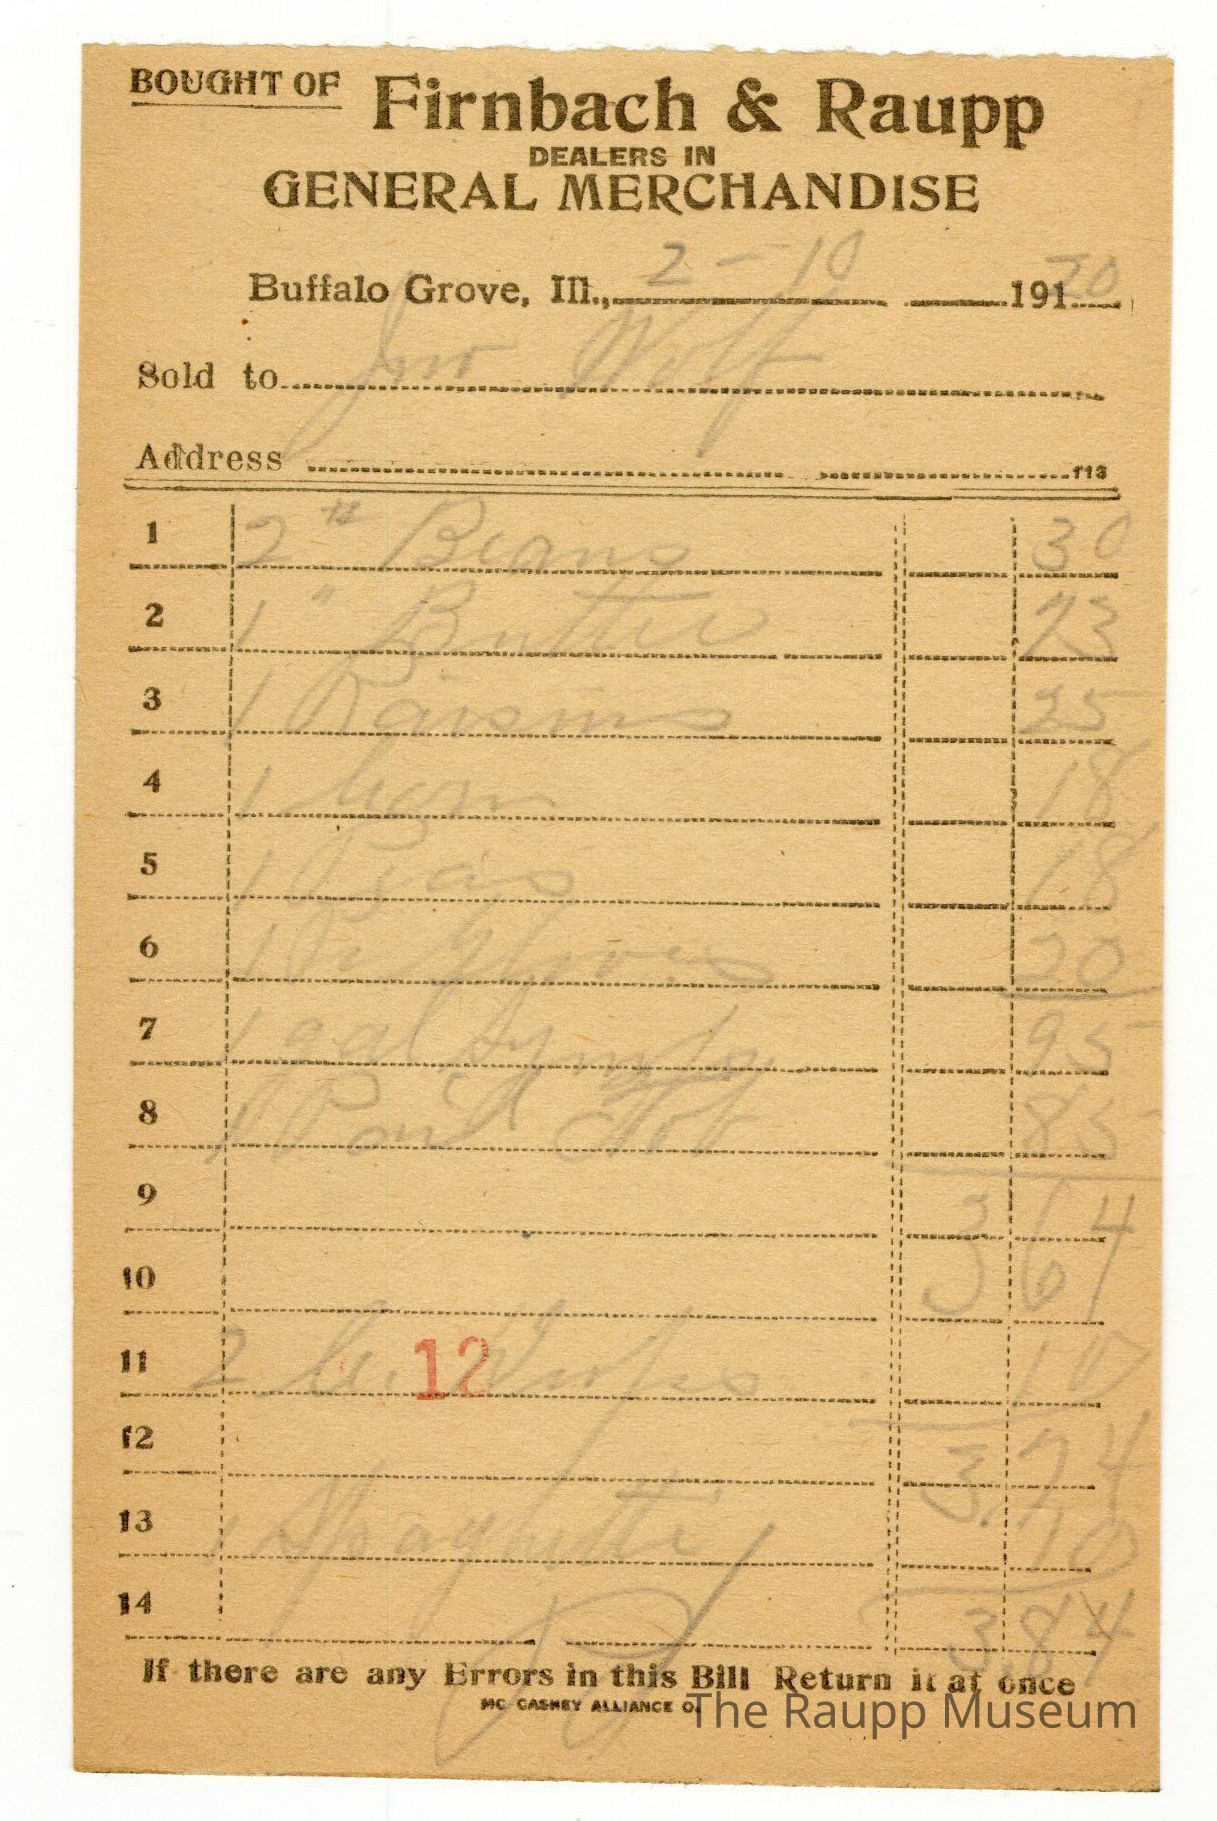 BOUGHT OF Firnbach & Raupp
DEALERS IN
GENERAL MERCHANDISE
Buffalo Grove, Ill., 2-10 191 20
Sold to Jno Wolf
Address 113
1 2 # Beans 30
2 1 " Butter 73
3 1 Raisins 25
4 1 Corn 18
5 1 Peas 18
6 1 Pr Gloves 20
7 1 gal Syrup 95
8 85
9 3 64
10 3 64
11 2 12 10
12 3.74
13 1 Spaghetti 10
14 3 84
If there are any Errors in this Bill Return it at once
MC CASKEY ALLIANCE O.
The Raupp Museum